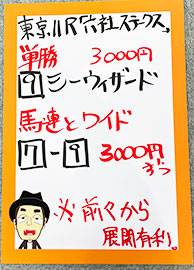 東京11R六社ステークス
単勝 3000円
9 シーウィザード
馬連とワイド
7-9 3000円
ずつ
※前々から
展開有利。